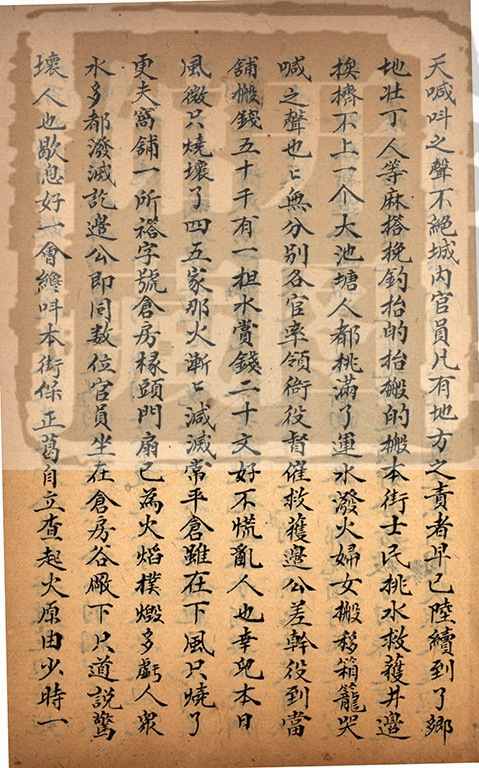 天喊呌之聲不絕城内官員凡有地方之責者早已陸續到了鄉
地壯丁人等麻搭挽鈎抬的抬搬的搬本街士民挑水救護井邊
挨擠不上一个大池塘人都挑滿了運水潑火婦女搬移箱籠哭
喊之聲也〻無分別各官率領衙役督催救護邊公差幹役到當
舖搬錢五十千有一担水賞錢二十文好不慌亂人也幸兒本日
風微只燒壞了四五家那火漸〻減滅常平倉雖在下風只燒了
更夫窩舖一所裕字號倉房椽頭門扇已為火焰撲燬多虧人衆
水多都潑滅訖邊公即同数位官員坐在倉房谷厫下只道説驚
壞人也歇息好一會纔呌本街保正葛自立查起火原由少時一